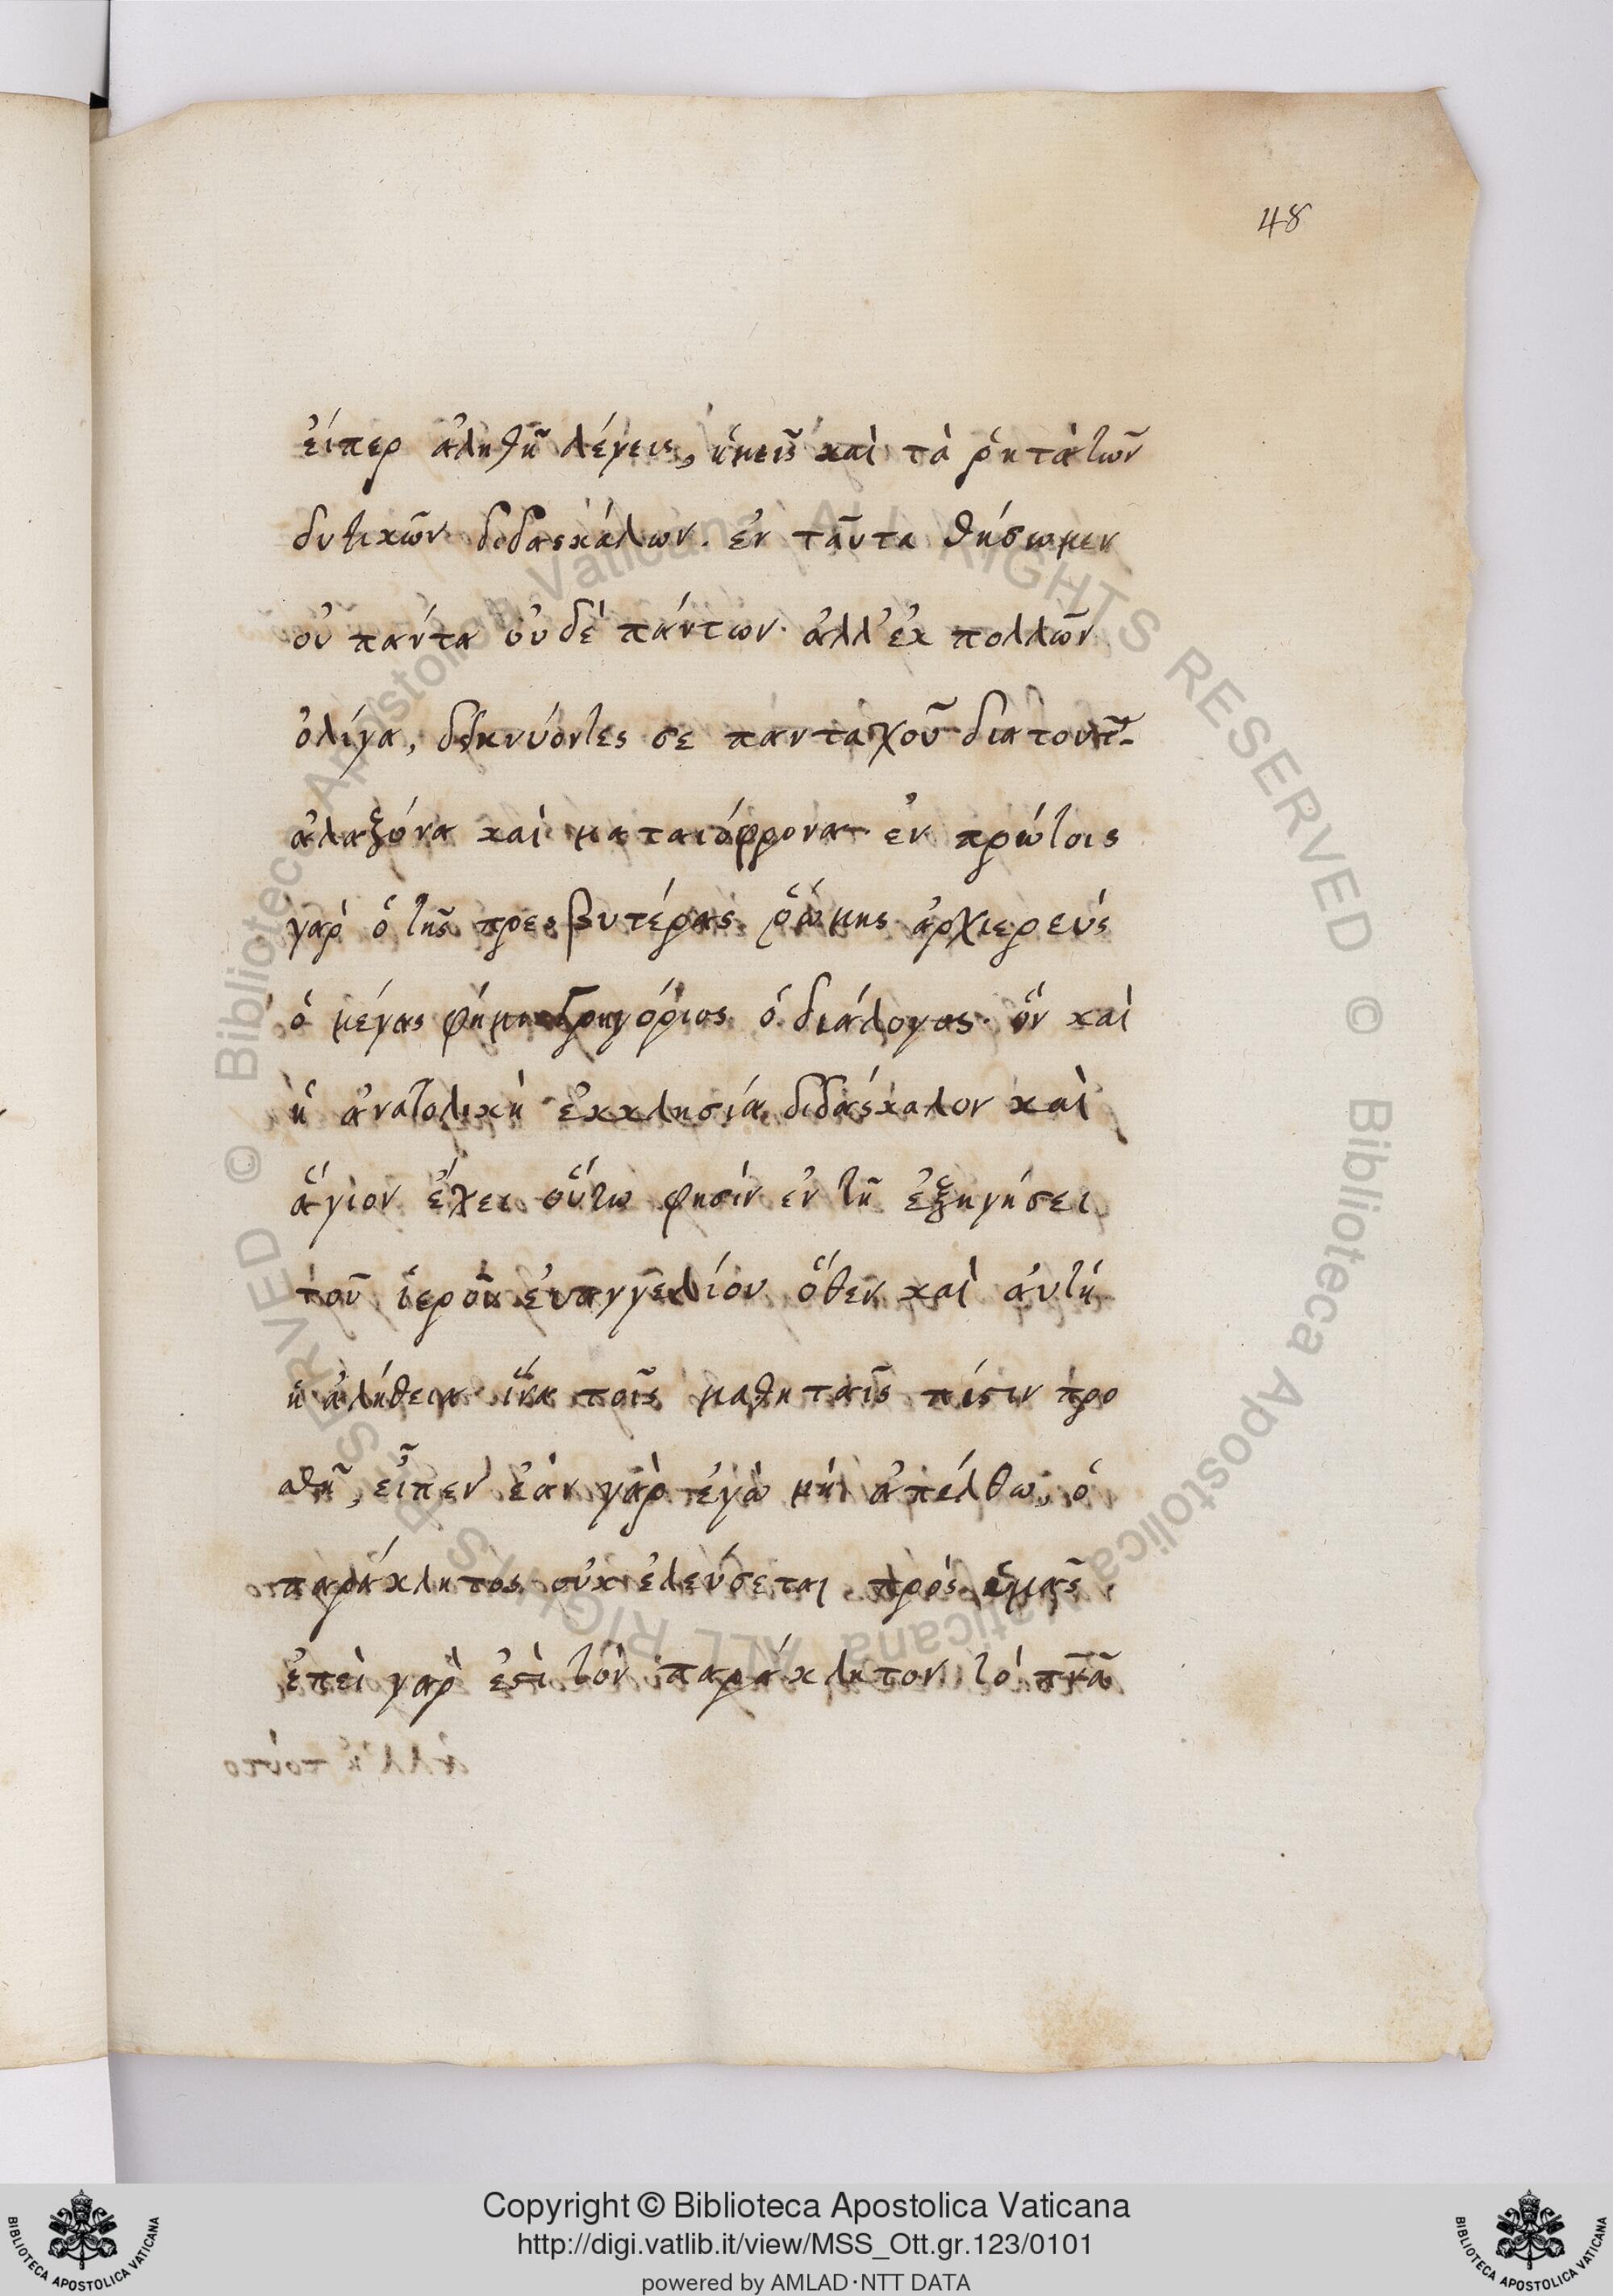 48
ἐίπερ ἀληθῆ λέγεις, ἡμεῖς καὶ τὰ ῥητὰ τῶν
δυτικῶν διδασκάλων. ἐν ταῦτα θήσωμεν
οὐ πάντα οὐδὲ πάντων· ἀλλ' ἐκ πολλῶν
ὀλίγα, δεικνύοντες σε πανταχοῦ διατουτ
ἀλαζόνα καὶ ματαιόφρονα· ἐν πρώτοις
γὰρ ὁ τῆς πρεσβυτέρας ῥώμης ἀρχιερεύς
ὁ μέγας φημι Γρηγόριος ὁ διάλογος· ὃν καὶ
ἡ ἀνατολικὴ ἐκκλησιά διδάσκαλον καὶ
ἅγιον ἔχει οὕτω φησίν ἐν τῇ ἐξηγήσει
τοῦ ἱεροῦ ἐυαγγελίου ὅθεν καὶ ἀυτή
ἡ ἀλήθεια ἵνα τοῖς μαθηταῖς πίστιν προ
σθῇ, εἶπεν ἐὰν γὰρ ἐγὼ μὴ ἀπέλθω, ὁ
παράκλητος οὐκ ἐλεύσεται πρὸς ὑμᾶς
ἐπεὶ γὰρ ἐστὶ τὸν παράκλητον τὸ πνᾶ
Copyright © Biblioteca Apostolica Vaticana
http://digi.vatlib.it/view/MSS_Ott.gr.123/0101
powered by AMLAD·NTT DATA
BIBLIOTECA APOSTOLICA VATICANA
BIBLIOTECA APOSTOLICA VATICANA
© Biblioteca Apostolica Vaticana ALL RIGHTS RESERVED © Biblioteca Apostolica Vaticana ALL RIGHTS RESERVED